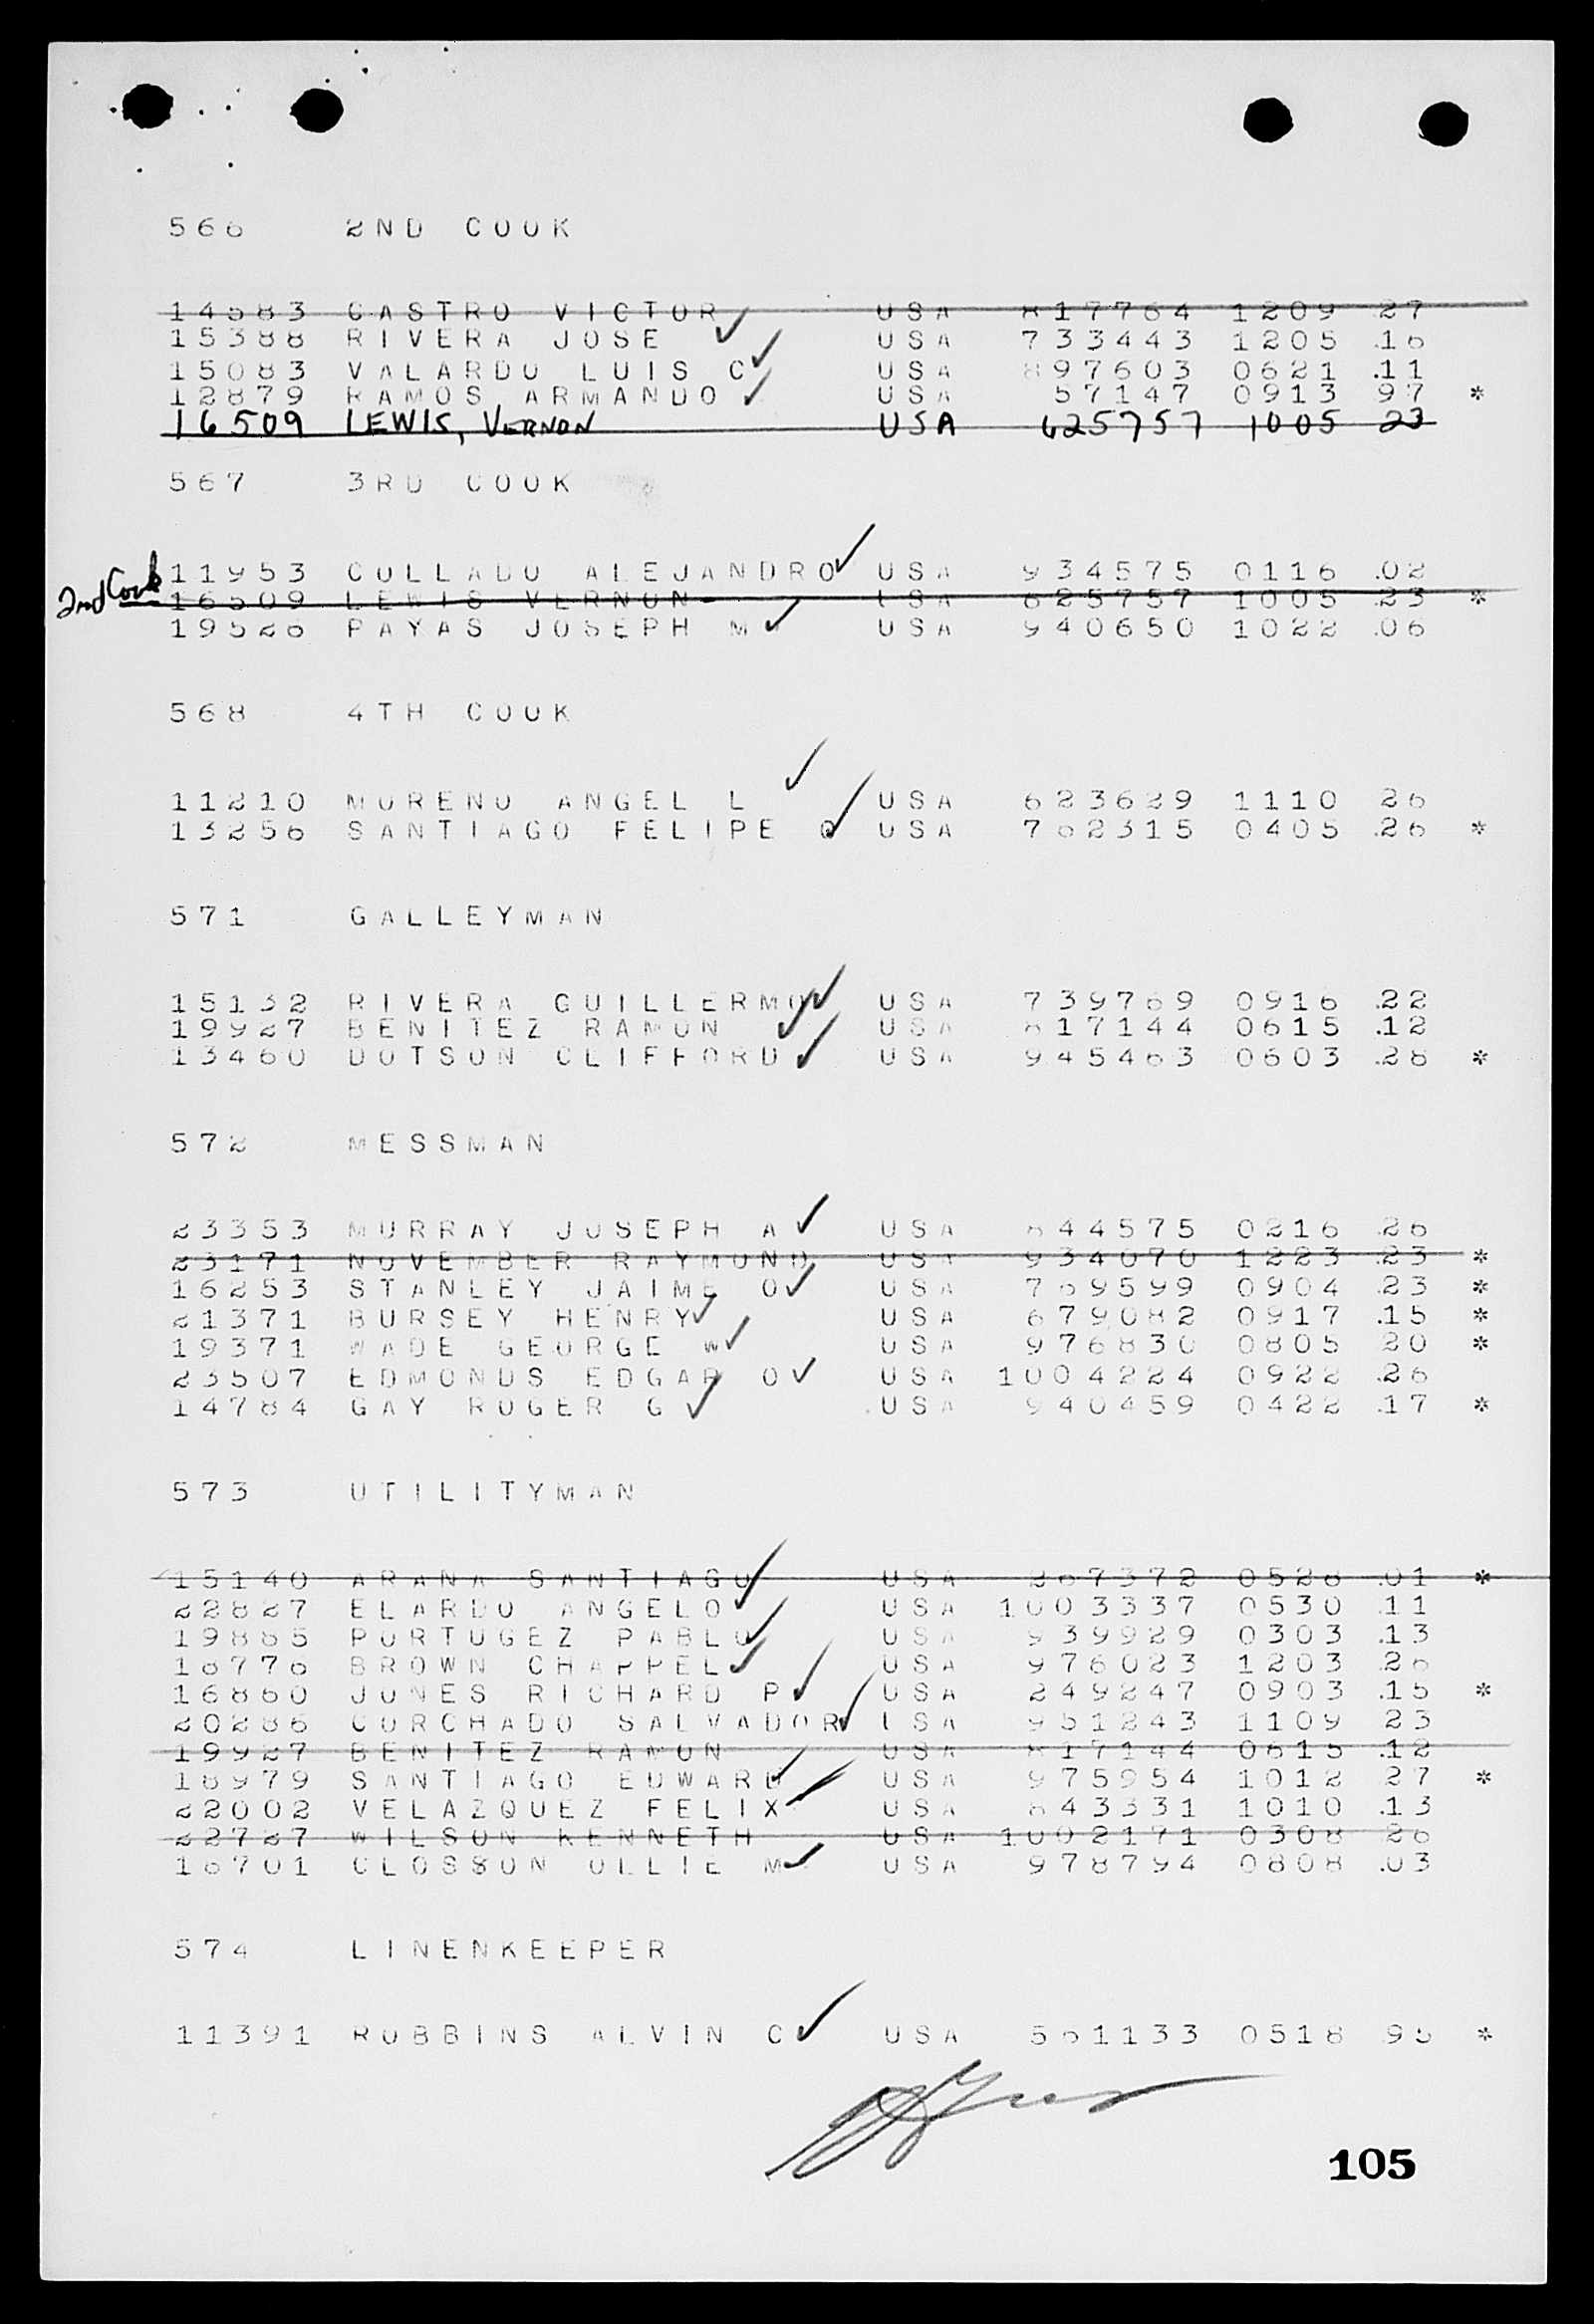 566 2ND COOK
14583 CASTRO VICTOR USA 817764 1209 27
15388 RIVERA JOSE USA 733443 1205 .16
15083 VALARDO LUIS C USA 897603 0621 .11
12879 RAMOS ARMANDO USA 57147 0913 97 *
16509 LEWIS, VERNON USA 625757 1005 23
567 3RD COOK
11953 COLLADO ALEJANDRO USA 934575 0116 .02
2nd Cook 16509 LEWIS VERNON USA 625757 1005 .23 *
19526 PAYAS JOSEPH M USA 940650 1022 .06
568 4TH COOK
11210 MORENO ANGEL L USA 623629 1110 26
13256 SANTIAGO FELIPE O USA 762315 0405 .26 *
571 GALLEYMAN
15132 RIVERA GUILLERMO USA 739769 0916 .22
19927 BENITEZ RAMON USA 817144 0615 .12
13460 DOTSON CLIFFORD USA 945463 0603 .28 *
572 MESSMAN
23353 MURRAY JOSEPH A USA 844575 0216 26
23171 NOVEMBER RAYMOND USA 934070 1223 .23 *
16253 STANLEY JAIME O USA 769599 0904 .23 *
21371 BURSEY HENRY USA 679082 0917 .15 *
19371 WADE GEORGE W USA 976830 0805 20 *
23507 EDMONDS EDGAR O USA 1004224 0922 .26
14784 GAY ROGER G USA 940459 0422 .17 *
573 UTILITYMAN
15140 ARANA SANTIAGO USA 267372 0528 .01 *
22827 ELARDO ANGELO USA 1003337 0530 .11
19865 PORTUGEZ PABLO USA 939929 0303 .13
16776 BROWN CHAPPEL USA 976023 1203 .26
16860 JONES RICHARD P USA 249247 0903 .15 *
20286 CORCHADO SALVADOR USA 951243 1109 23
19927 BENITEZ RAMON USA 817144 0615 .12
18979 SANTIAGO EDWARD USA 975954 1012 27 *
22002 VELAZQUEZ FELIX USA 843331 1010 .13
22727 WILSON KENNETH USA 1002171 0308 26
16701 CLOSSON OLLIE M USA 978794 0808 .03
574 LINENKEEPER
11391 ROBBINS ALVIN C USA 561133 0518 95 *
105